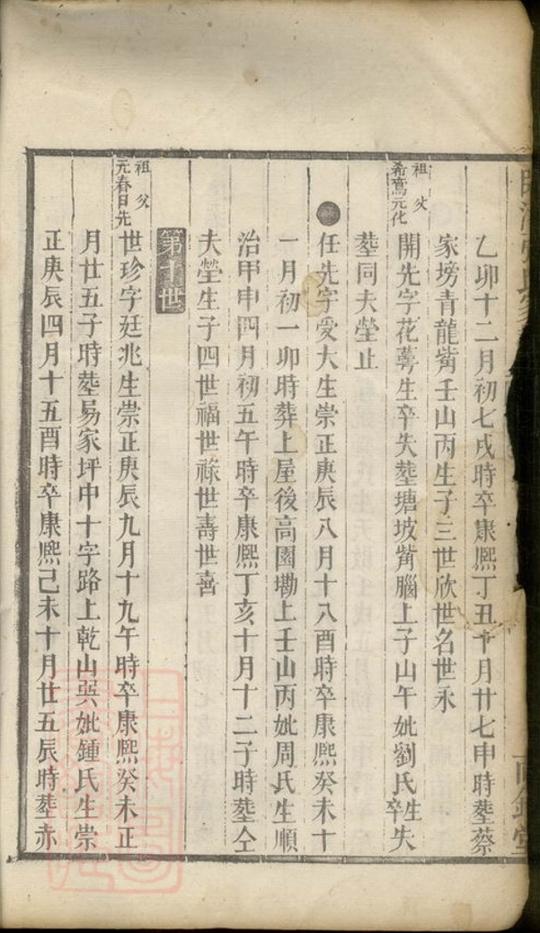 乙卯十二月初七戌時卒康熈丁丑十月廿七申時塟蔡
家塝青龍觜壬山丙生子三世欣世名世永
祖父
希鸞元化
開先字花蕚生卒失塟塘坡觜腦上子山午妣劉氏生卒失
塟同夫塋止
任先字受大生崇正庚辰八月十八酉時卒康熈癸未十
一月初一卯時葬上屋後高園墈上壬山丙妣周氏生順
治甲申四月初五午時卒康熈丁亥十月十二子時塟仝
夫塋生子四世福世祿世壽世喜
第十世
祖父
元春日先
世珍字廷兆生崇正庚辰九月十九午時卒康熈癸未正
月廿五子時塟易家坪中十字路上乾山巽妣鍾氏生崇
正庚辰四月十五酉時卒康熈己未十月廿五辰時塟赤